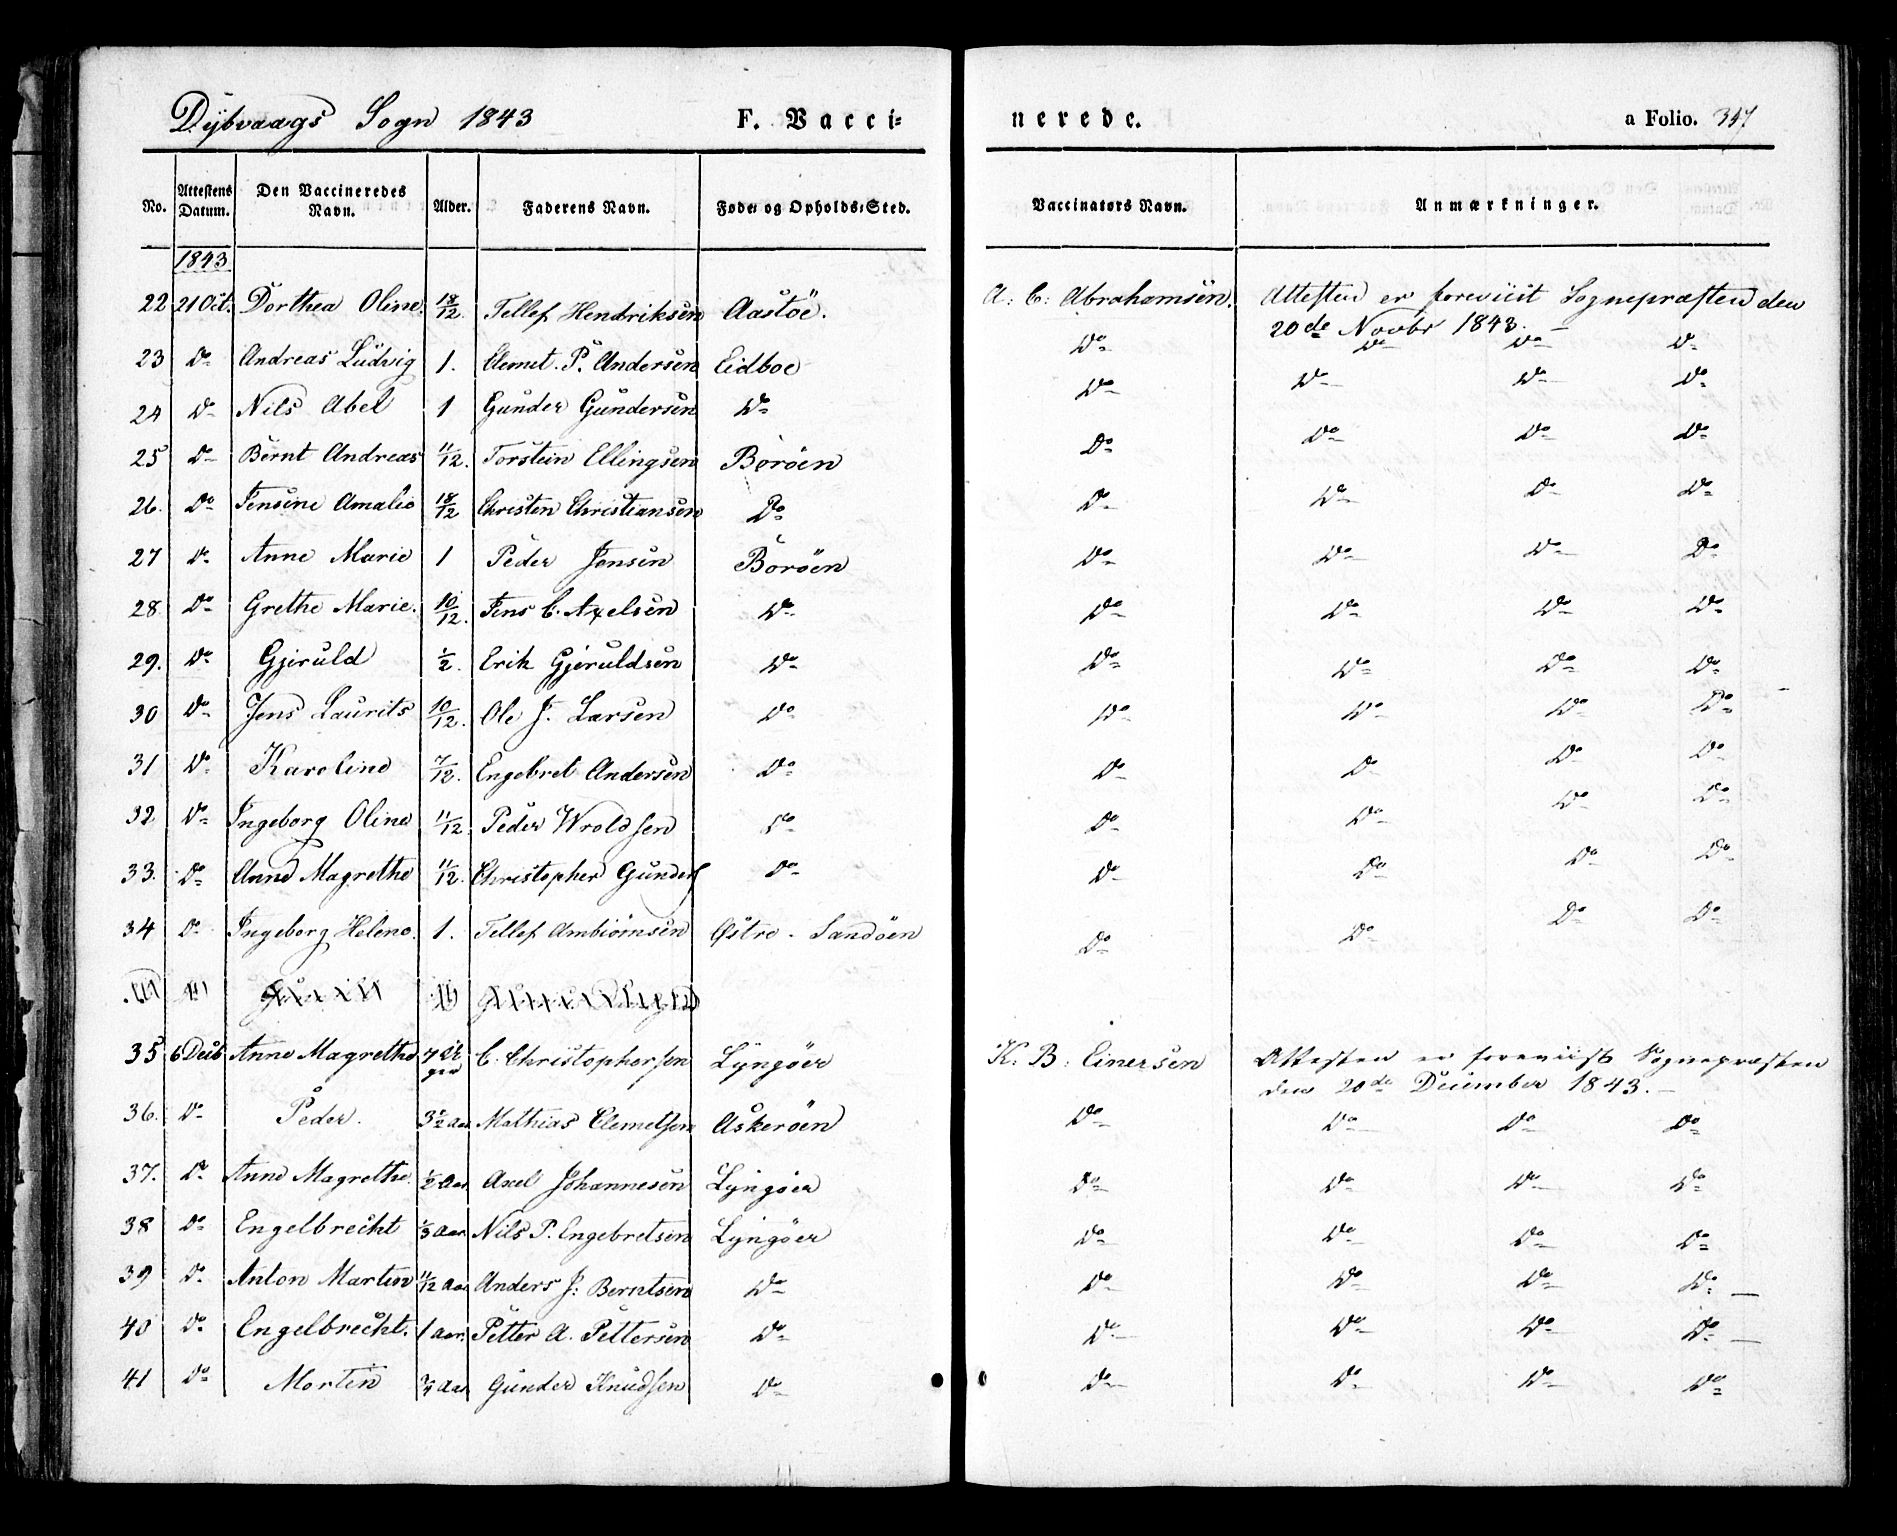 Dybvaags Sogn 1843 F. Vacci=nerede. a Folio. 347
No. Attestens Datum. Den Vaccineredes Navn. Alder. Faderens Navn. Føde= og Opholds=Sted. Vaccinators Navn. Anmærkninger.
1843
22 21 Oct. Dorthea Oline. 18/12. Tellef Hendriksen Aastöe. A: C: Abrahamsen. Attesten er foreviist Sognepræsten den
20de Novbr 1843. –
23 Do Andreas Ludvig 1. Clemet. P. Andersen Eidboe Do Do Do Do
24 Do Nils Abel 1 Gunder Gundersen Do Do Do Do Do
25 Do Bernt Andreas 11/12. Torstein Ellingsen Boröen Do Do Do Do
26. Do Jensine Amalie 18/12 Christen Christiansen Do Do Do Do Do
27 Do Anne Marie 1 Peder Jensen Boröen Do Do Do Do
28 Do Grethe Marie. 10/12. Jens C. Axelsen Do Do Do Do Do
29. Do Gjeruld 1/2. Erik Gjeruldsen Do Do Do Do Do
30 Do Jens Laurits 10/12. Ole J. Larsen Do Do Do Do Do
31 Do Karoline 7/12. Engebret Andersen Do Do Do Do Do
32 Do Ingeborg Oline 11/12 Peder Wroldsen Do Do Do Do Do
33. Do Anne Magrethe 11/12. Christopher Gunders Do Do Do Do Do
34 Do Ingeborg Helene. 1. Tellef Ambiörnsen Østre - Sandöen Do Do Do Do
35 6 Decb Anne Magrethe C. Christophersen Lyngöer K: B: Einersen Attesten er foreviist Sognepræsten
den 20de December 1843. –
36. Do Peder. Aar Mathias Clemetsen Askeröen Do Do Do Do
37. Do Anne Magrethe. 1/2 Aar Axel Johannesen Lyngöer Do Do Do Do
38 Do Engelbrecht 1/3 Aar Nils P. Engebretsen Lyngöer Do Do Do Do
39 Do Anton Marten 11/12 Aar Anders J: Berntsen Do Do Do Do Do
40 Do Engelbrecht. 1 Aar. Petter A. Pettersen Do Do Do Do Do
41 Do Morten 3/4 Aar Gunder Knudsen Do Do Do Do Do